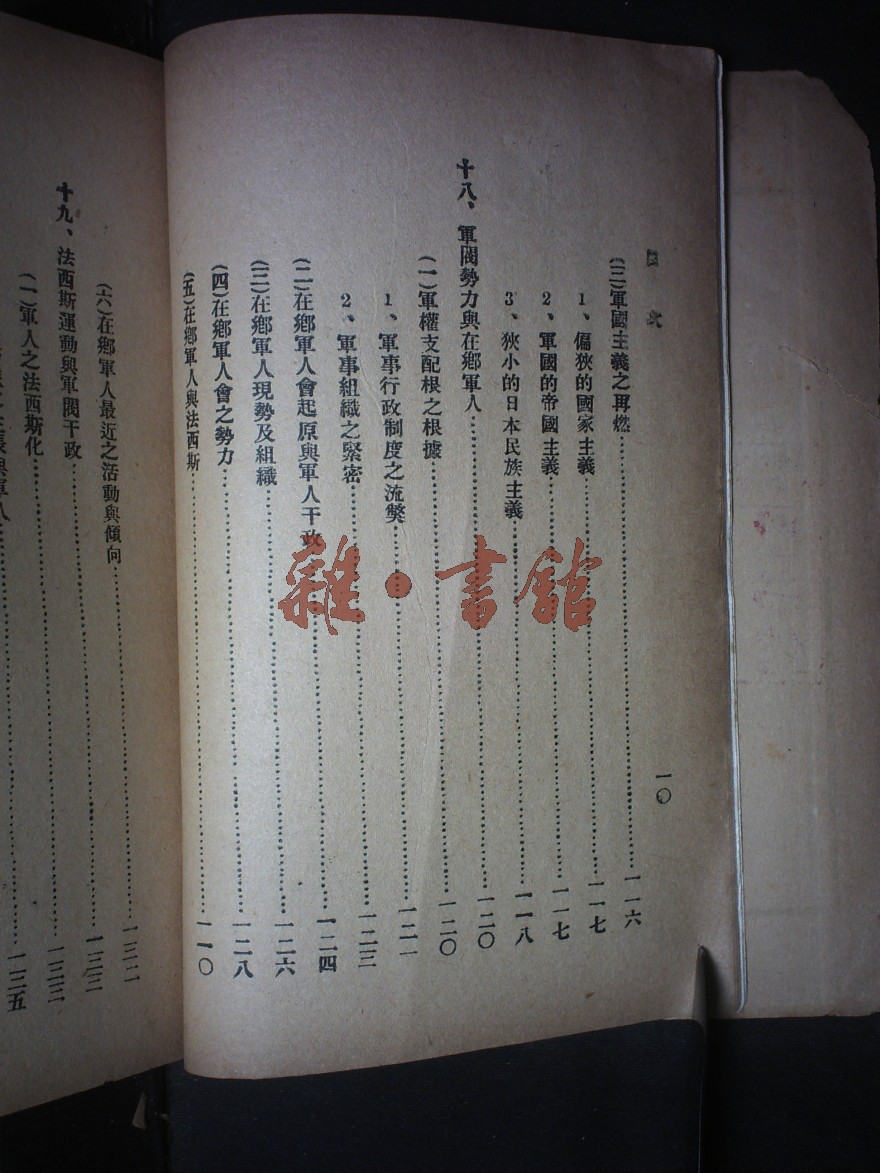 目次
一〇
(三)軍國主義之再燃……一一六
1、偏狹的國家主義……一一七
2、軍國的帝國主義……一一七
3、狹小的日本民族主義……一一八
十八、軍閥勢力與在鄉軍人……一二〇
(一)軍權支配根之根據……一二〇
1、軍事行政制度之流獘……一二一
2、軍事組織之緊密……一二三
(二)在鄉軍人會起原與軍人干政……一二四
(三)在鄉軍人現勢及組織……一二六
(四)在鄉軍人會之勢力……一二八
(五)在鄉軍人與法西斯……一一〇
(六)在鄉軍人最近之活動與傾向……一三二
十九、法西斯運動與軍閥干政……一三三
(一)軍人之法西斯化……一三三
一三五
雜·書館